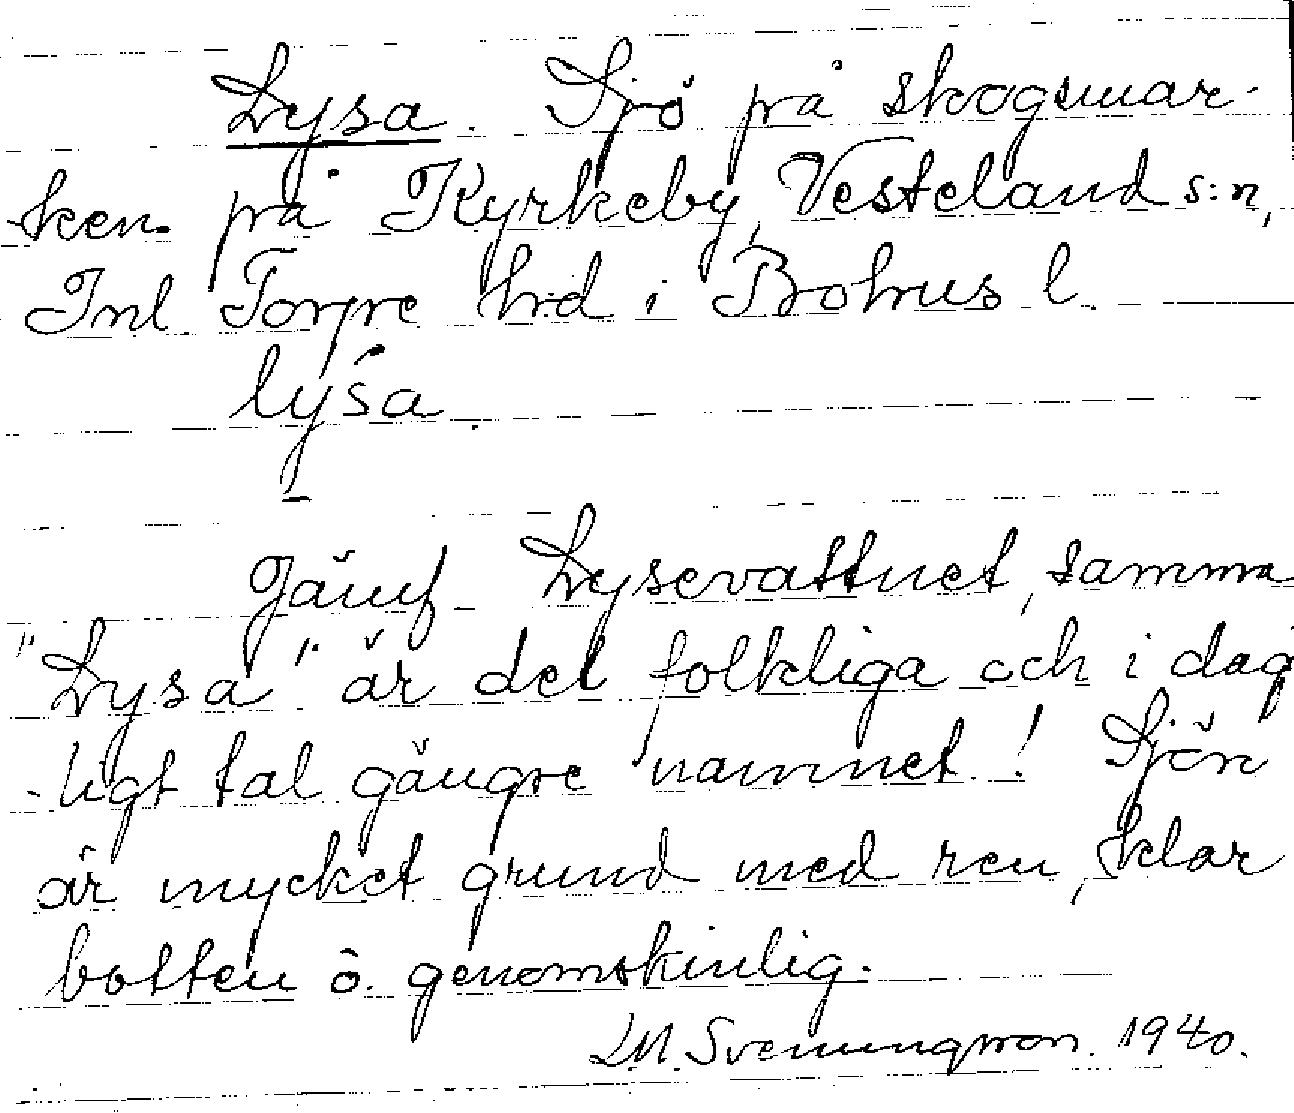 Lysa. Sjö på skogsmar-
ken på Kyrkeby, Vesteland s:n,
Inl Torpe hrd i Bohus l.
lýśa
Jämf Lysevattnet, samma
"Lysa" är det folkliga och i dag
ligt tal gängse namnet! Sjön
är mycket grund med ren, klar
botten o. genomskinlig.
LM. Svenungsson. 1940.